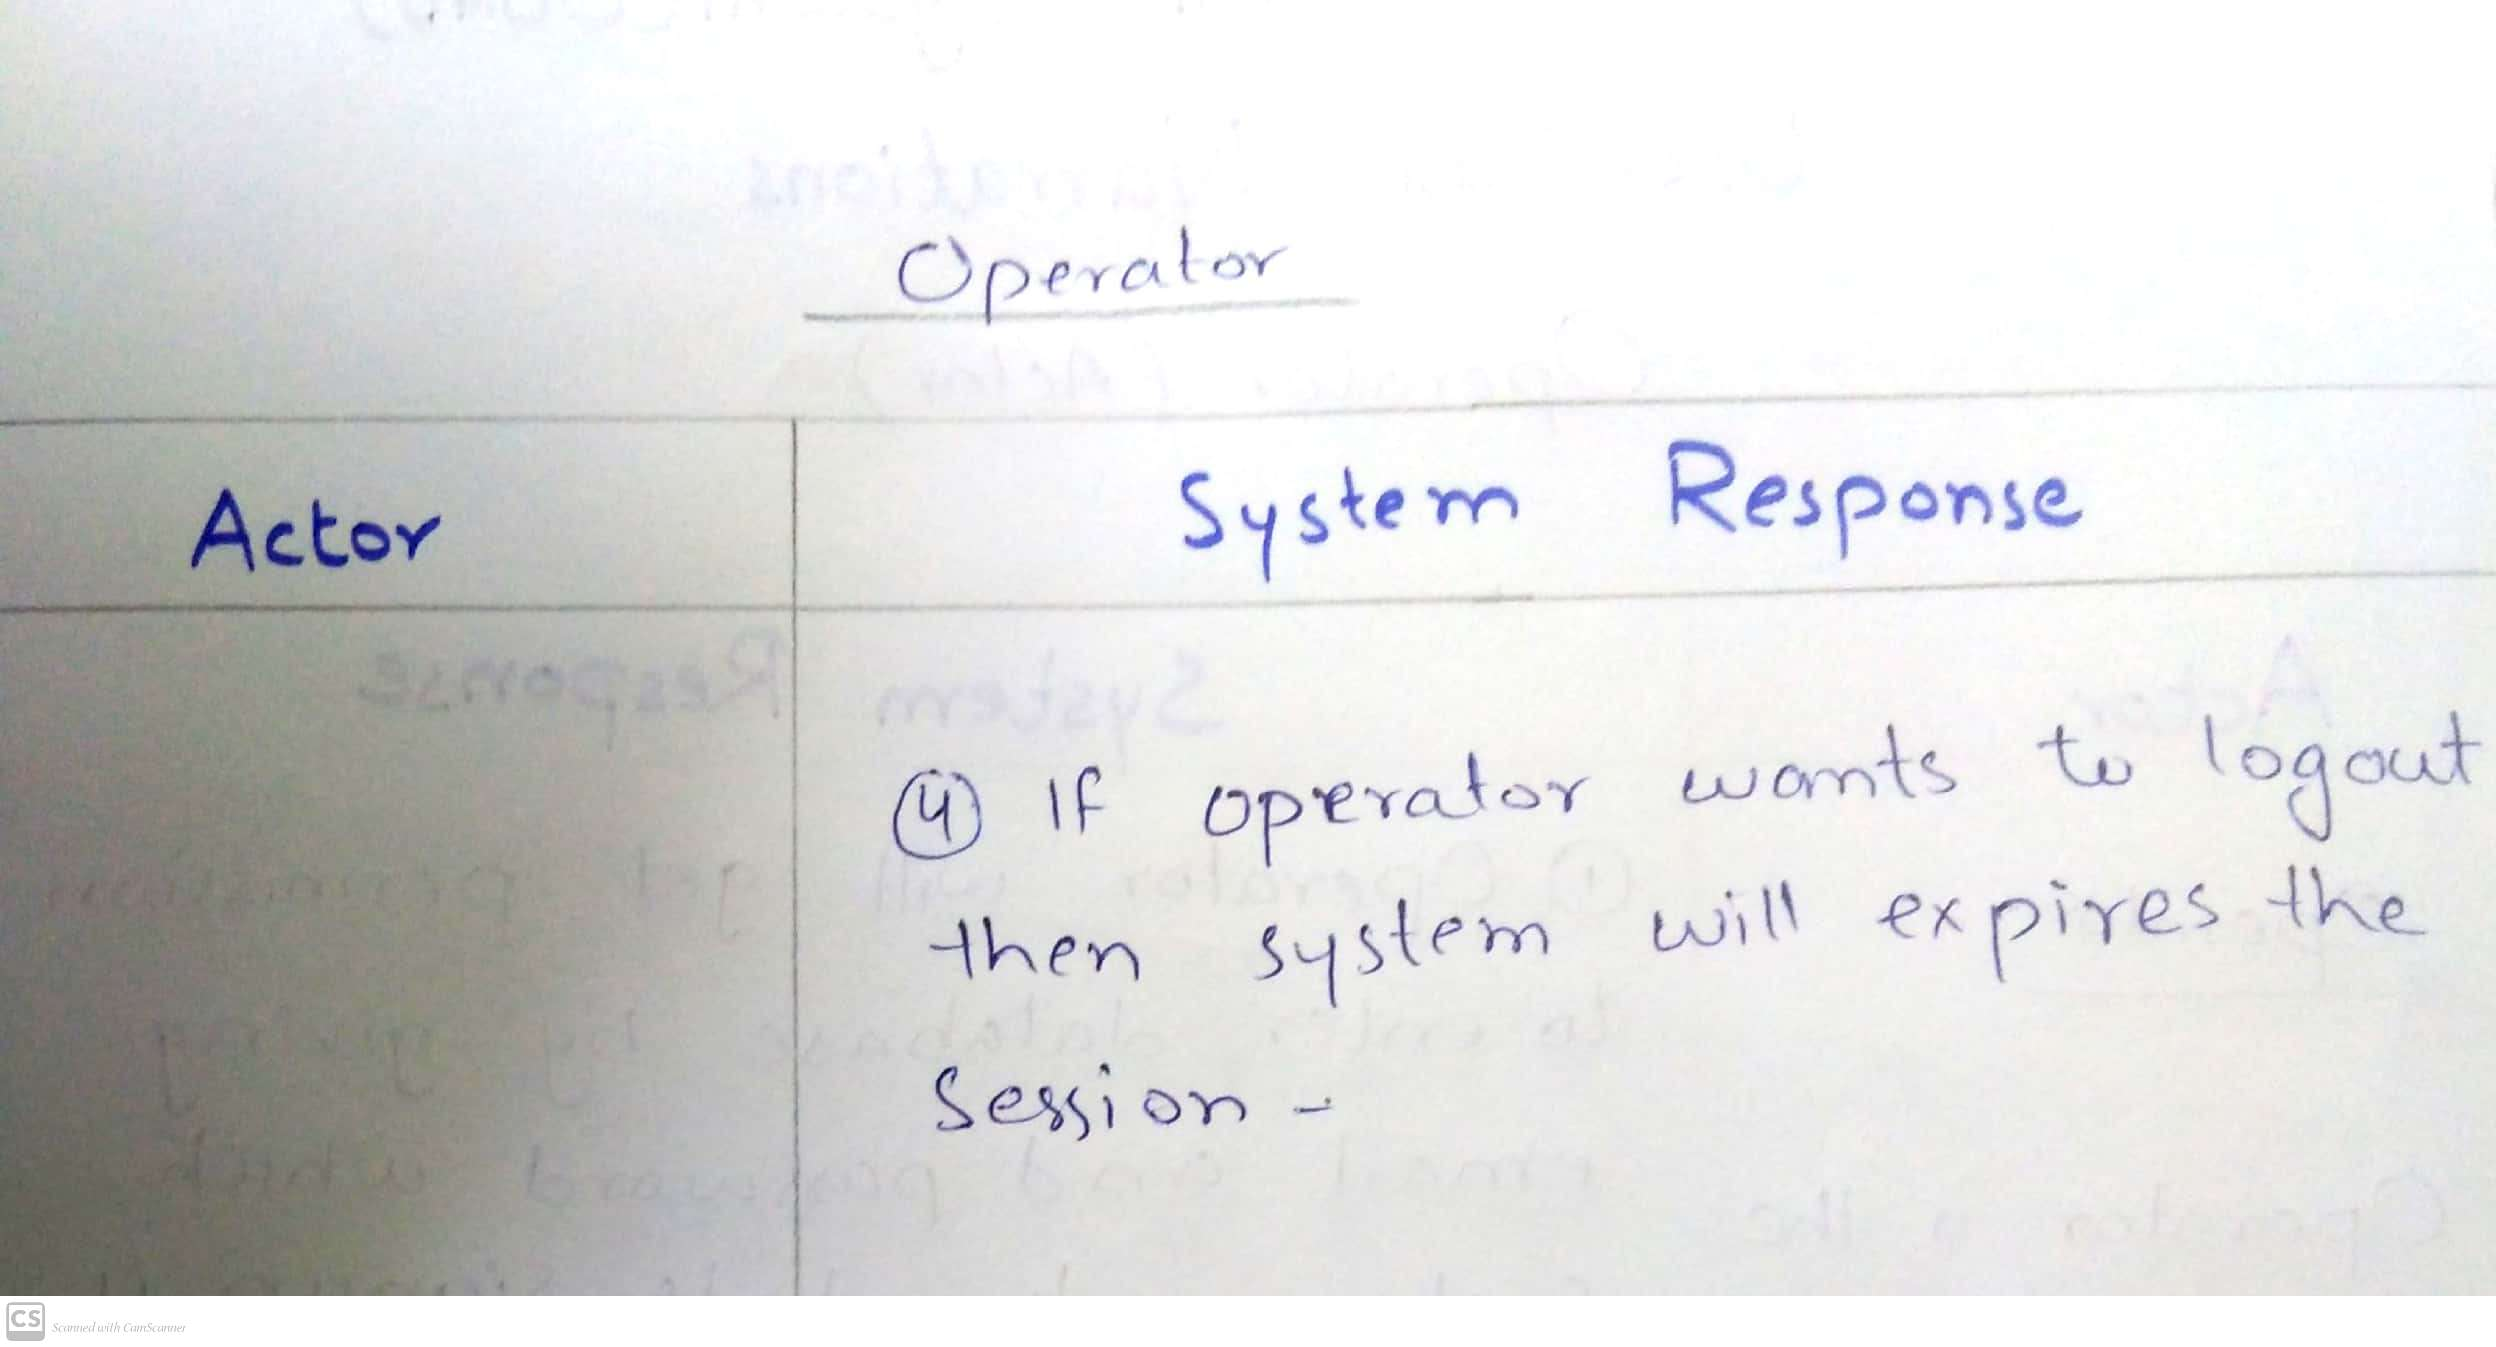 Operator
Actor
System Response
④ If operator wants to logout
then system will expires the
Session -
CS Scanned with CamScanner